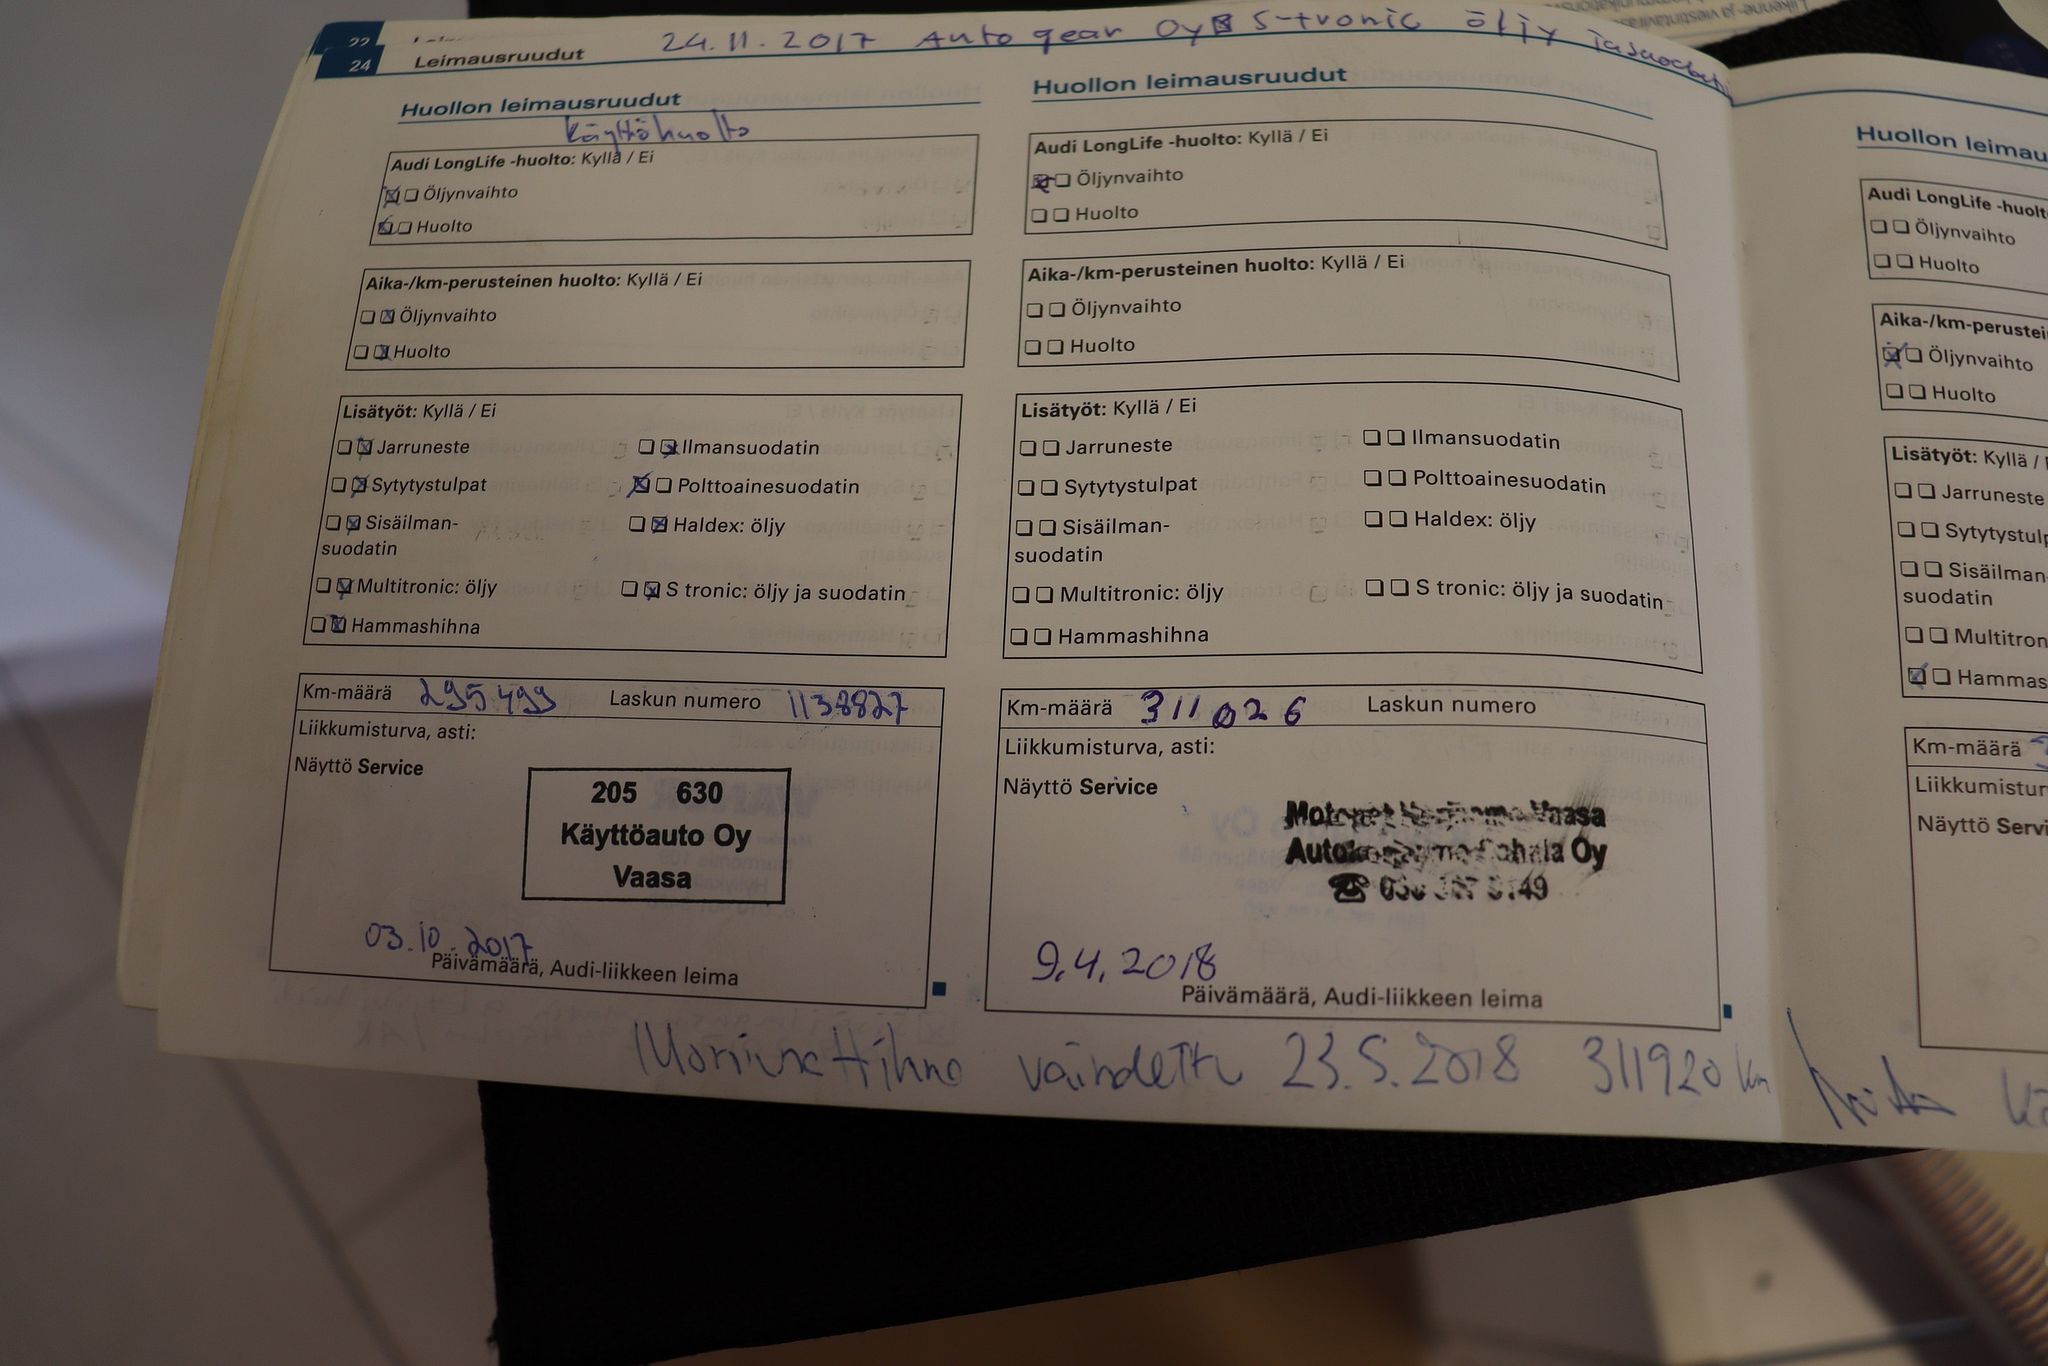 22
24 Leimausruudut
24.11.2017 Auto gear Oy S-tronic öljy ja suodatin
Huollon leimausruudut
Käyttöhuolto
Audi LongLife -huolto: Kyllä / Ei
Öljynvaihto
Huolto
Aika-/km-perusteinen huolto: Kyllä / Ei
Öljynvaihto
Huolto
Lisätyöt: Kyllä / Ei
Jarruneste Ilmansuodatin
Sytytystulpat Polttoainesuodatin
Sisäilman- Haldex: öljy
suodatin
Multitronic: öljy S tronic: öljy ja suodatin
Hammashihna
Km-määrä 295499 Laskun numero 1138827
Liikkumisturva, asti:
Näyttö Service
205 630
Käyttöauto Oy
Vaasa
03.10.2017
Päivämäärä, Audi-liikkeen leima
Huollon leimausruudut
Audi LongLife -huolto: Kyllä / Ei
Öljynvaihto
Huolto
Aika-/km-perusteinen huolto: Kyllä / Ei
Öljynvaihto
Huolto
Lisätyöt: Kyllä / Ei
Jarruneste Ilmansuodatin
Sytytystulpat Polttoainesuodatin
Sisäilman- Haldex: öljy
suodatin
Multitronic: öljy S tronic: öljy ja suodatin
Hammashihna
Km-määrä 311026 Laskun numero
Liikkumisturva, asti:
Näyttö Service
Vaasa
Oy
9.4.2018
Päivämäärä, Audi-liikkeen leima
23.5.2018 311920 km
Huollon leimau
Audi LongLife -huolt
Öljynvaihto
Huolto
Aika-/km-perustei
Öljynvaihto
Huolto
Lisätyöt: Kyllä /
Jarruneste
Sytytystulp
Sisäilman
suodatin
Multitron
Hammas
Km-määrä
Liikkumistur
Näyttö Servi